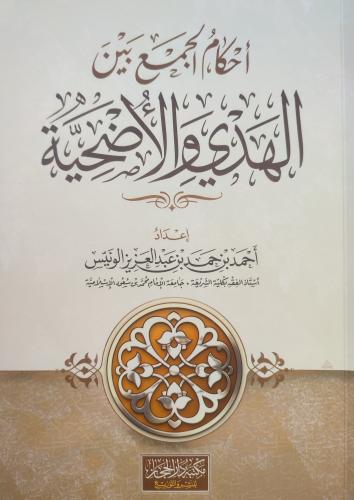 أحكام الجمع بين
الهدي والأضحية
إعداد
أحمد بن حمد بن عبد العزيز الونيس
أستاذ الفقه بكلية الشريعة - جامعة الإمام محمد بن سعود الإسلامية
مكتبة دار الحجاز
للنشر والتوزيع